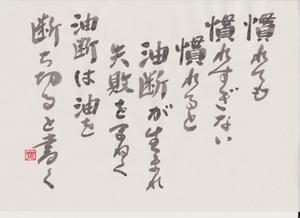 慣れても
慣れすぎない
慣れると
油断が生まれ
失敗をまねく
油断は油を
断ち切ると書く